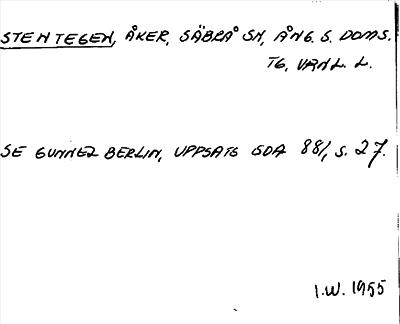 STENTEGEN, ÅKER, SÄBRÅ SN, ÅNG. S. DOMS.
TG, VRNL. L.
SE GUNNEL BERLIN, UPPSATS SOA 881, S. 27.
I.W. 1955